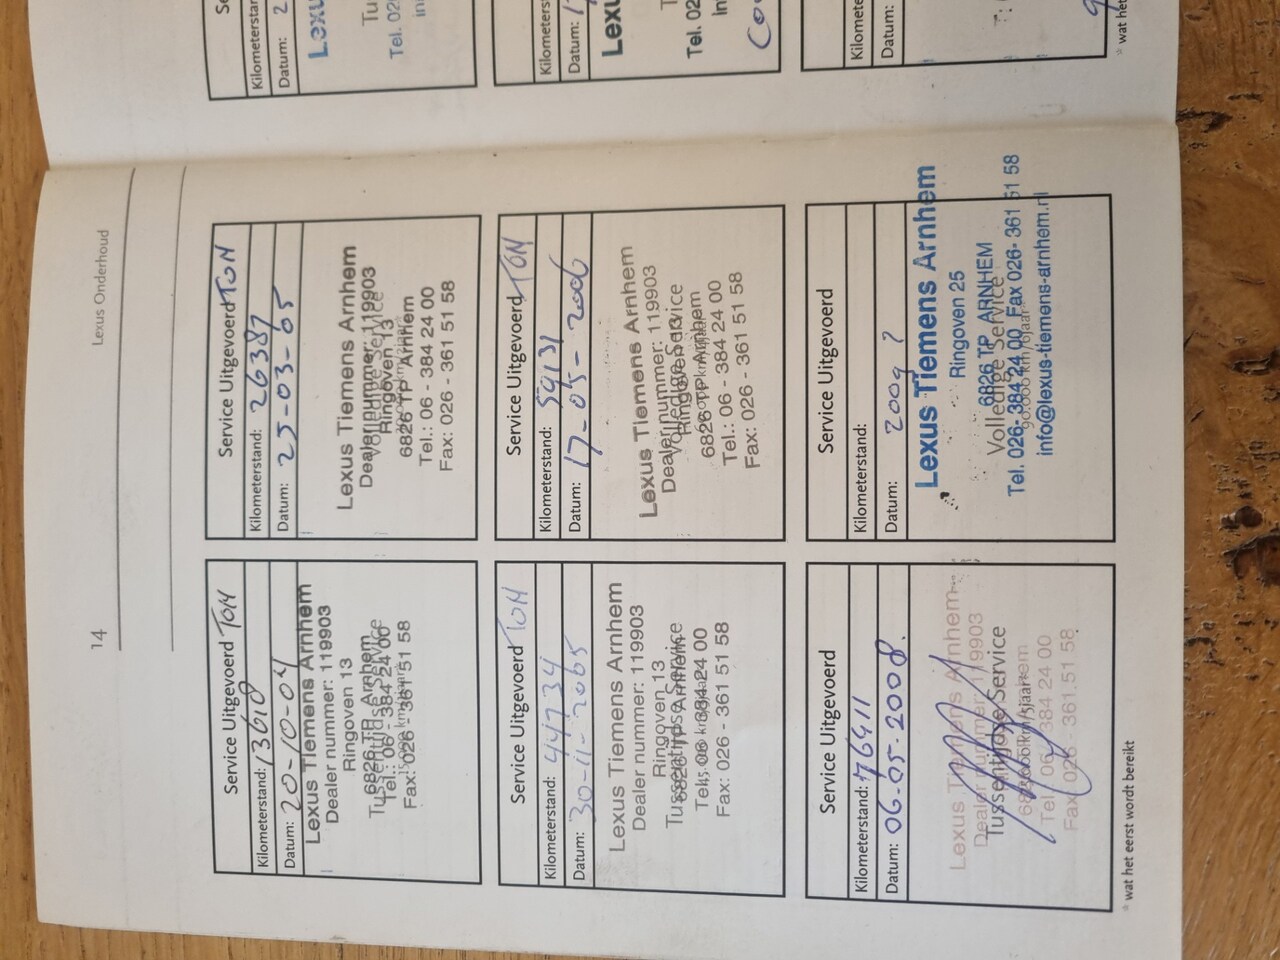 Lexus Onderhoud
14
Service Uitgevoerd TON
Kilometerstand: 13610
Datum: 20-10-04
Lexus Tiemens Arnhem
Dealer nummer: 119903
Ringoven 13
6826 TP Arnhem
Tussentijdse Service
Tel.: 06 - 384 24 00
Fax: 026 - 361 51 58
Service Uitgevoerd TON
Kilometerstand: 26387
Datum: 23-03-05
Lexus Tiemens Arnhem
Dealer nummer: 119903
Volledige Service
Ringoven 13
6826 TP Arnhem
Tel.: 06 - 384 24 00
Fax: 026 - 361 51 58
Service Uitgevoerd TON
Kilometerstand: 44734
Datum: 30-11-2005
Lexus Tiemens Arnhem
Dealer nummer: 119903
Ringoven 13
Tussentijdse Service
6826 TP Arnhem
Tel.: 06 - 384 24 00
Fax: 026 - 361 51 58
Service Uitgevoerd TON
Kilometerstand: 59131
Datum: 17-05-2006
Lexus Tiemens Arnhem
Dealer nummer: 119903
Volledige Service
Ringoven 13
6826 TP Arnhem
Tel.: 06 - 384 24 00
Fax: 026 - 361 51 58
Service Uitgevoerd
Kilometerstand: 76411
Datum: 06-05-2008.
Lexus Tiemens Arnhem
Dealer nummer: 119903
Tussentijdse Service
Tel.: 06 - 384 24 00
Fax: 026 - 361 51 58
Service Uitgevoerd
Kilometerstand:
Datum: 2009 ?
Lexus Tiemens Arnhem
Ringoven 25
6826 TP ARNHEM
Volledige Service
Tel. 026- 384 24 00 Fax 026- 361 51 58
90.000 km/6jaar*
info@lexus-tiemens-arnhem.nl
* wat het eerst wordt bereikt
Datum: 2
Lexu
Tel. 02
Datum:
Lexu
Tel. 02
Datum:
* wat het